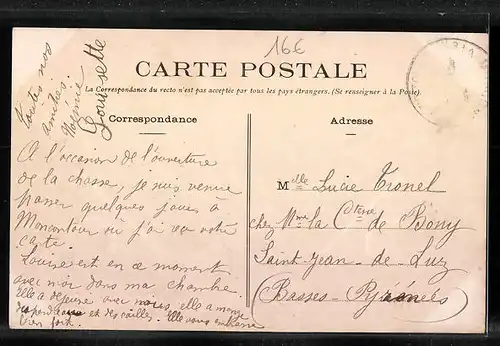 16€
CARTE POSTALE
La Correspondance du recto n'est pas acceptée par tous les pays étrangers. (Se renseigner à la Poste).
Correspondance
A l'occasion de l'ouverture
de la chasse, je suis venue
passer quelques jours à
Moncontour où j'ai reçu votre
carte.
Louisette est en ce moment
avec moi dans ma chambre.
Elle a déjeuné avec nous, elle a mangé
des perdreaux et des cailles. Elle vous embrasse
bien fort.
Toutes nos
amitiés.
Louisette
Adresse
Melle Lucie Tronel
chez Mme la Ctesse de Bony
Saint-Jean-de-Luz
(Basses-Pyrénées)